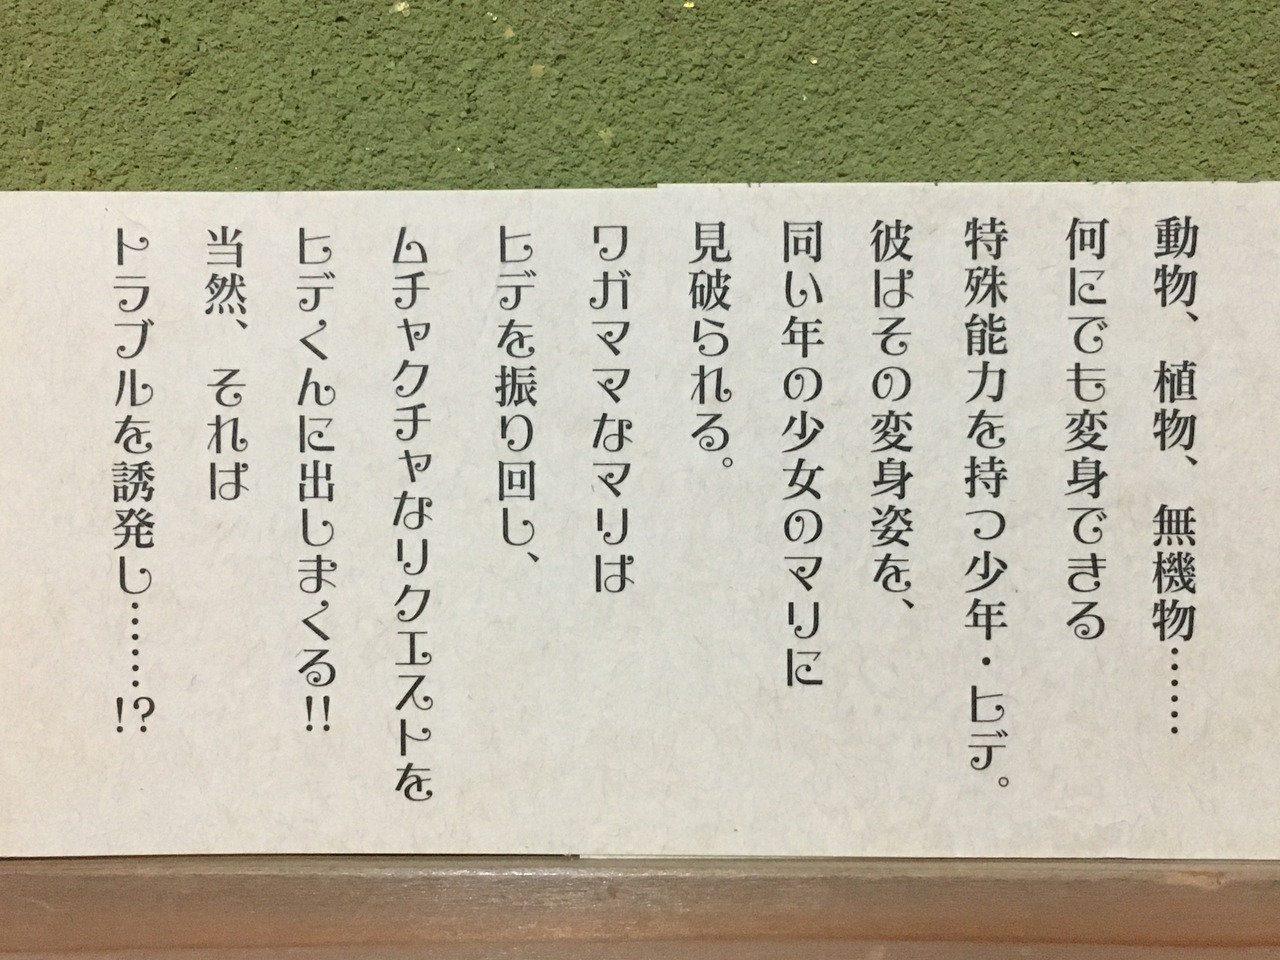 動物、植物、無機物……
何にでも変身できる
特殊能力を持つ少年・ヒデ。
彼はその変身姿を、
同い年の少女のマリに
見破られる。
ワガママなマリは
ヒデを振り回し、
ムチャクチャなリクエストを
ヒデくんに出しまくる!!
当然、それは
トラブルを誘発し……!?